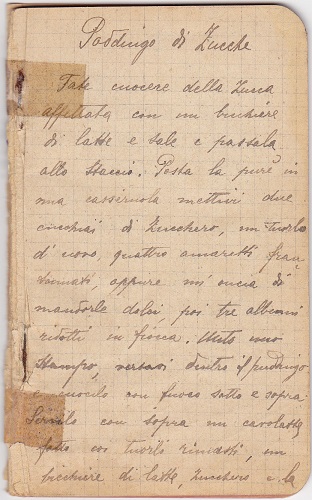 Poddingo di Zucche
Fate cuocere della Zucca
affettata con un bicchiere
di latte e sale e passala
allo staccio. Posta la purè in
una casseruola mettivi due
cucchiai di Zucchero, un torlo
d'uovo, quattro amaretti fran
tumati, oppure un'oncia di
mandorle dolci poi tre albumi
ridotti in fiocca. Unto uno
stampo, versavi dentro il puddingo
e cuocilo con fuoco sotto e sopra
Servilo con sopra un
fatto coi torli rimasti, un
bicchiere di latte Zucchero e la